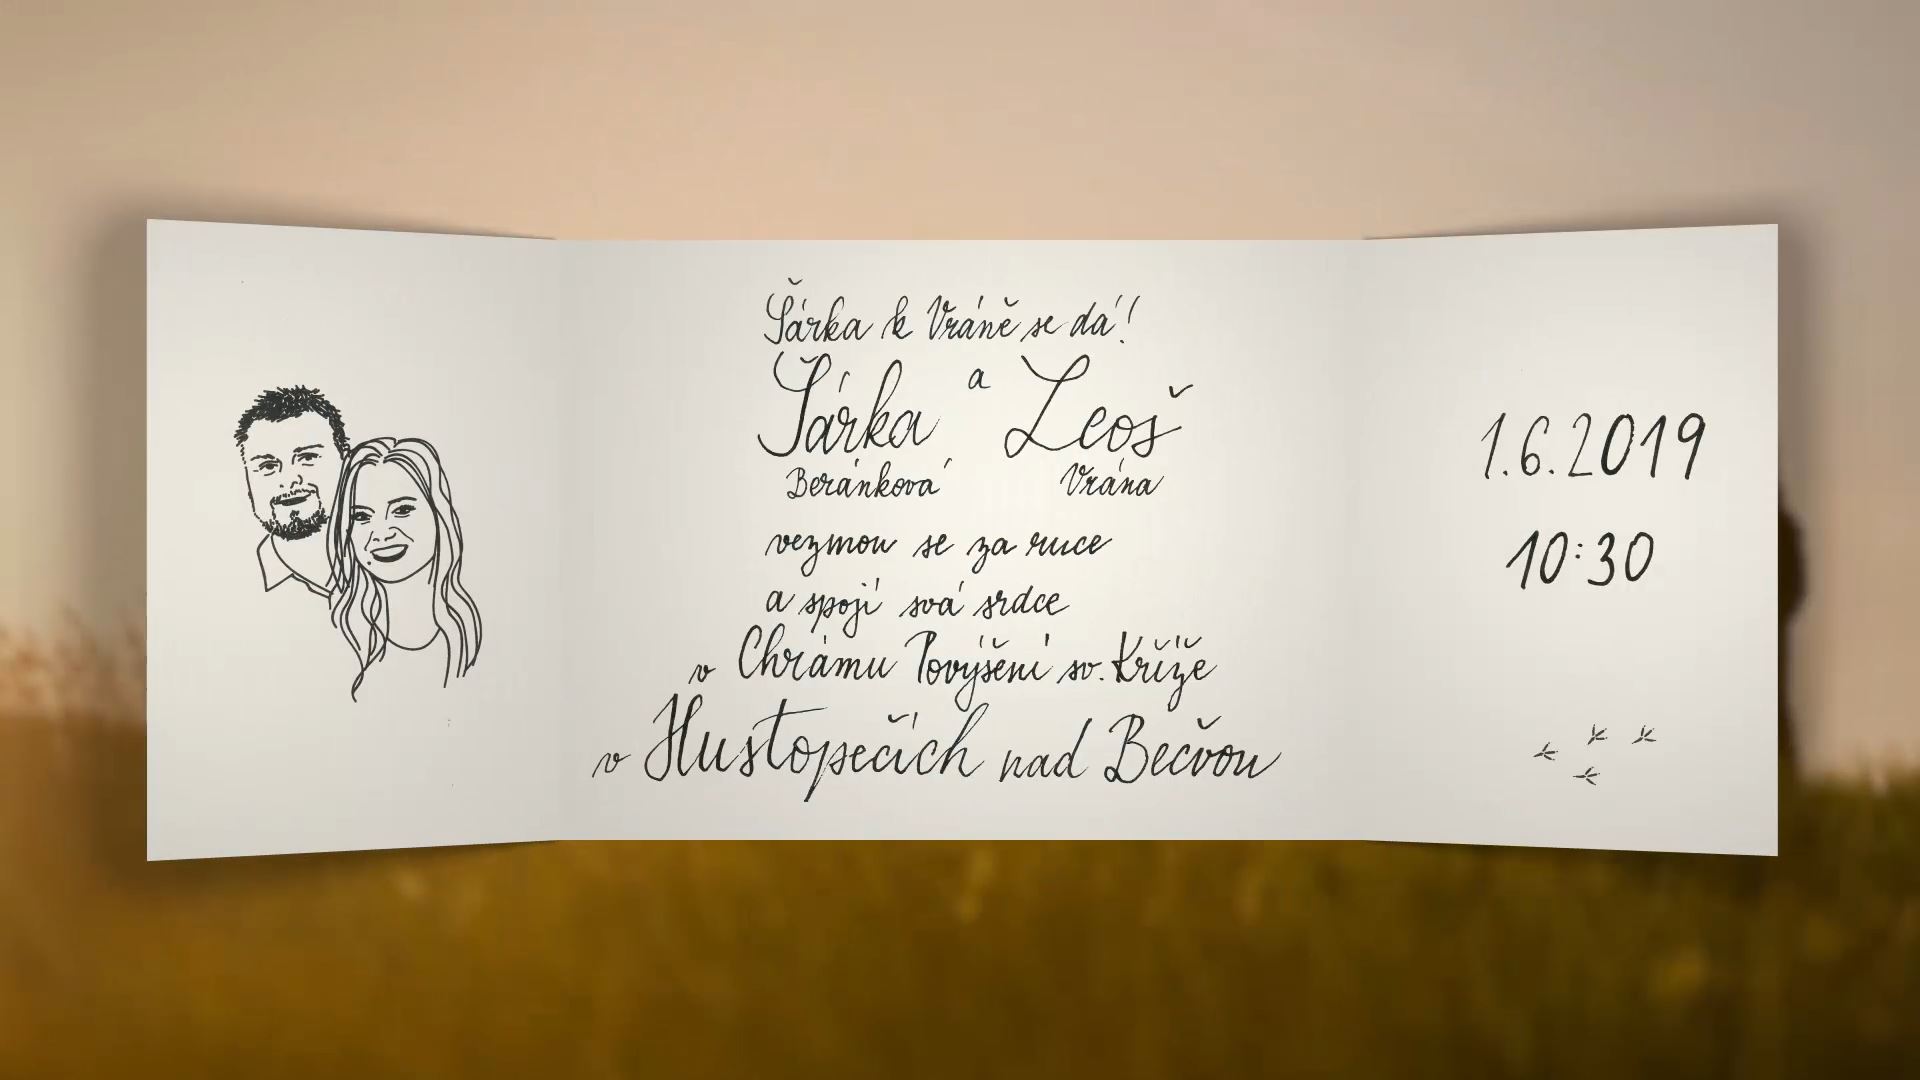 Šárka k Vráně se dá!
Šárka a Leoš
Beránková Vrána
vezmou se za ruce
a spojí svá srdce
v Chrámu Povýšení sv. Kříže
v Hustopečích nad Bečvou
1.6.2019
10:30